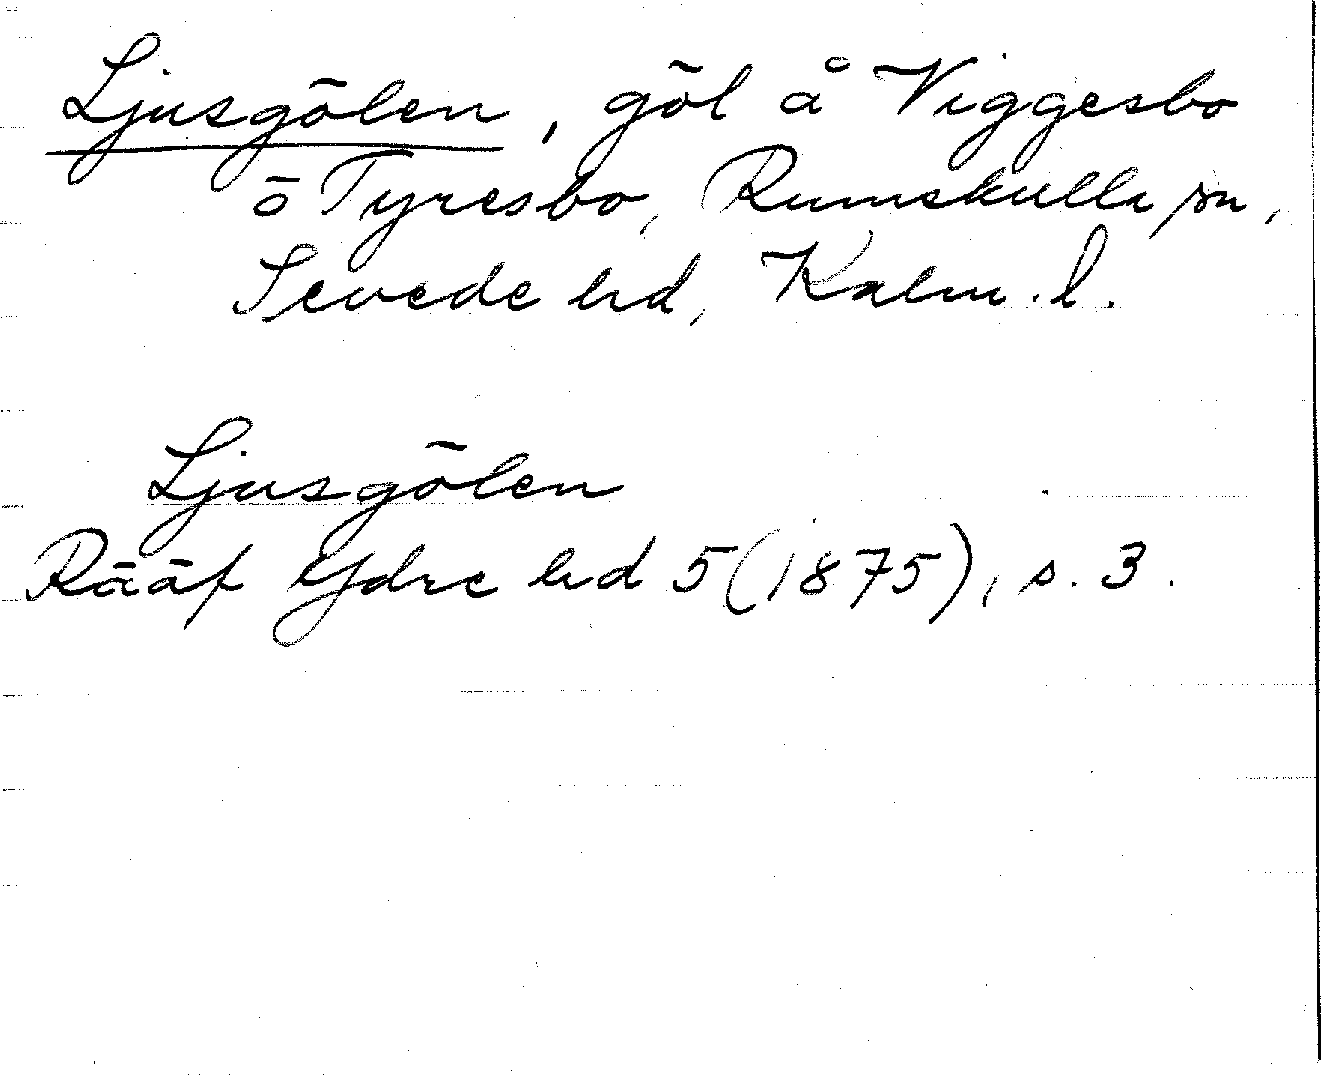 Ljusgölen, göl å Viggesbo
ö Tyresbo, Rumskulla sn,
Sevede hd, Kalm. l.
Ljusgölen
Rääf Ydre hd 5 (1875), s. 3.